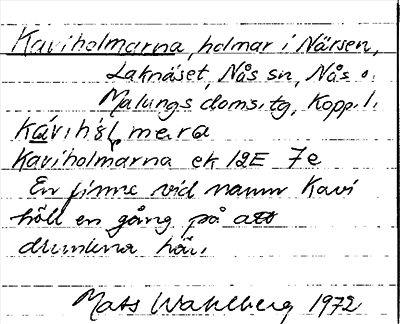 Kaviholmarna, holmar i Närsen,
Laknäset, Nås sn, Nås o.
Malungs doms.tg, Kopp.l.
Kaviholmarna ek 12E 7e
En finne vid namn Kavi
höll en gång på att
drunkna här.
Mats Wahlberg 1972